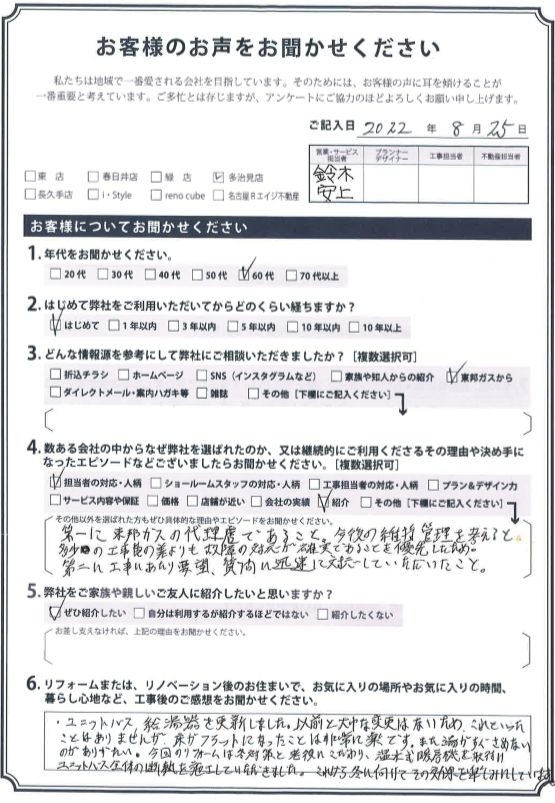 お客様のお声をお聞かせください
私たちは地域で一番愛される会社を目指しています。そのためには、お客様の声に耳を傾けることが
一番重要と考えています。ご多忙とは存じますが、アンケートにご協力のほどよろしくお願い申し上げます。
ご記入日 2022 年 8 月 25 日
□東 店 □春日井店 □緑 店 ☑多治見店
□長久手店 □i・Style □reno cube □名古屋Rエイジ不動産
営業・サービス担当者 プランナーデザイナー 工事担当者 不動産担当者
鈴木
安上
お客様についてお聞かせください
1. 年代をお聞かせください。
□20代 □30代 □40代 □50代 ☑60代 □70代以上
2. はじめて弊社をご利用いただいてからどのくらい経ちますか？
☑はじめて □1年以内 □3年以内 □5年以内 □10年以内 □10年以上
3. どんな情報源を参考にして弊社にご相談いただきましたか？［複数選択可］
□折込チラシ □ホームページ □SNS（インスタグラムなど） □家族や知人からの紹介 ☑東邦ガスから
□ダイレクトメール・案内ハガキ等 □雑誌 □その他［下欄にご記入ください］
4. 数ある会社の中からなぜ弊社を選ばれたのか、又は継続的にご利用くださるその理由や決め手に
なったエピソードなどございましたらお聞かせください。［複数選択可］
☑担当者の対応・人柄 □ショールームスタッフの対応・人柄 □工事担当者の対応・人柄 □プラン&デザイン力
□サービス内容や保証 □価格 □店舗が近い □会社の実績 ☑紹介 □その他［下欄にご記入ください］
その他以外を選ばれた方もぜひ具体的な理由やエピソードをお聞かせください。
第一に東邦ガスの代理店であること。今後の維持管理を考えると
の工事の差よりも故障の対応が確実であることを優先したため。
第二に工事にあたり要望、質問に迅速に対応していただいたこと。
5. 弊社をご家族や親しいご友人に紹介したいと思いますか？
☑ぜひ紹介したい □自分は利用するが紹介するほどではない □紹介したくない
お差し支えなければ、上記の理由をお聞かせください。
6. リフォームまたは、リノベーション後のお住まいで、お気に入りの場所やお気に入りの時間、
暮らし心地など、工事後のご感想をお聞かせください。
・ユニットバス、給湯器を更新しました。以前と大きな変更はないため、これといった
ことはありませんが、床がフラットになったことは非常に楽です。また湯がすぐさめない
のがありがたい。今回のリフォームは冬対策と老後にこだわり、温水式暖房機を取付け
ユニットバス全体の断熱を施工していただきました。これから冬に向けてその効果を楽しみにしています